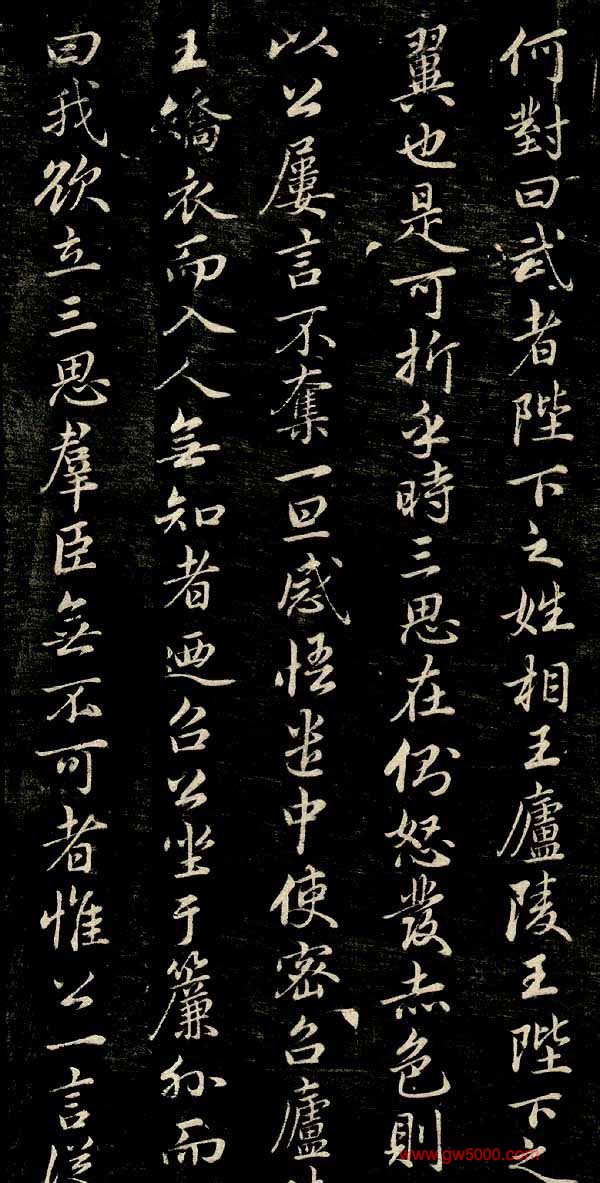 何對曰武者陛下之姓相王廬陵王陛下之
翼也是可折乎時三思在側怒發赤色則
以公屢言不奪一旦感悟遣中使密召廬
王矯衣而入人無知者迺召公坐于簾外而
曰我欲立三思羣臣無不可者惟公一言從
www.gw5000.com